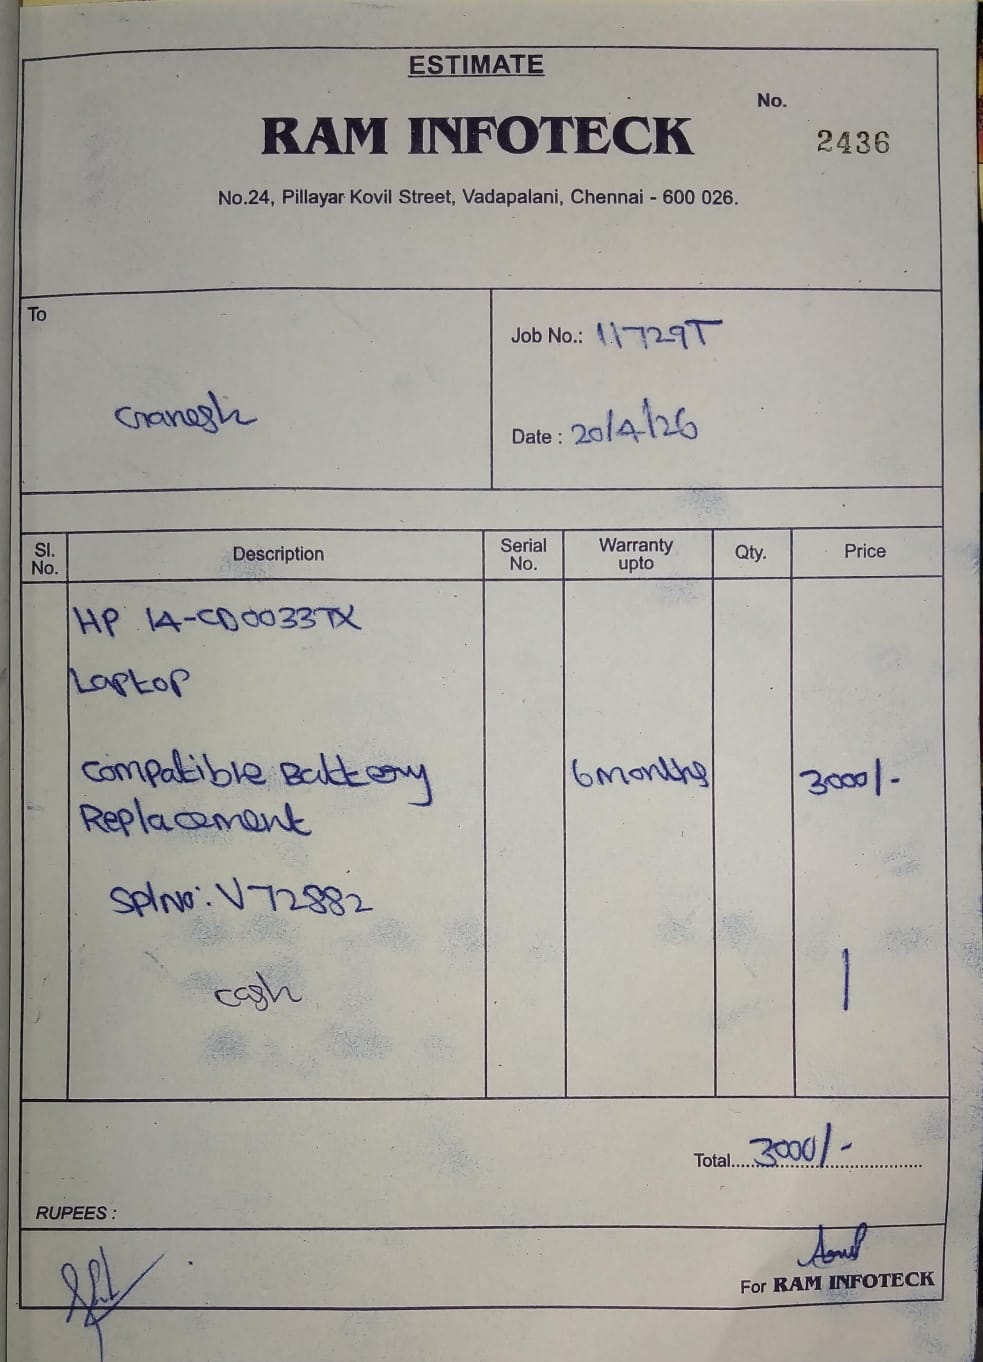 ESTIMATE
No.
RAM INFOTECK
2436
No.24, Pillayar Kovil Street, Vadapalani, Chennai - 600 026.
To
Job No.: 11729T
Ganesh
Date : 20/4/26
Sl. No. Description Serial No. Warranty upto Qty. Price
HP 14-CD0033TX
Laptop
Compatible Battery 6 months 3000/-
Replacement
Spl No: V72882
cash
Total.....3000/-
RUPEES :
For RAM INFOTECK